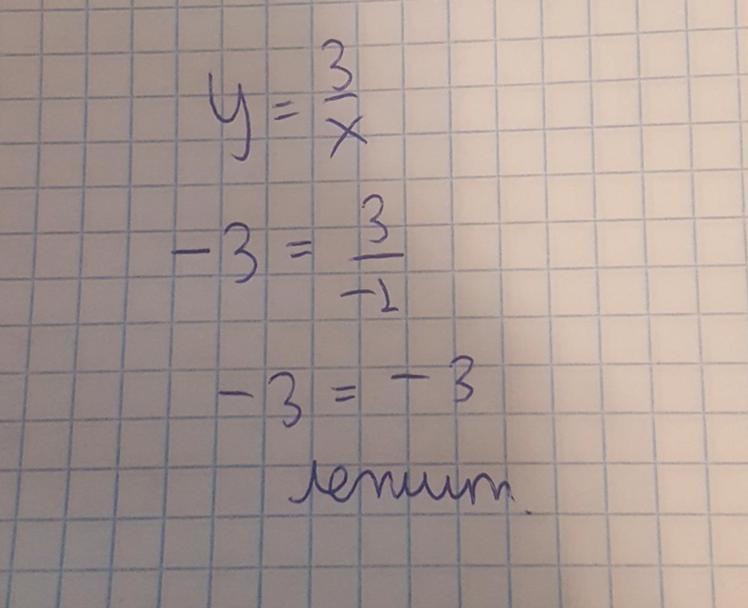 y = 3/x
-3 = 3/-1
-3 = -3
лежит.